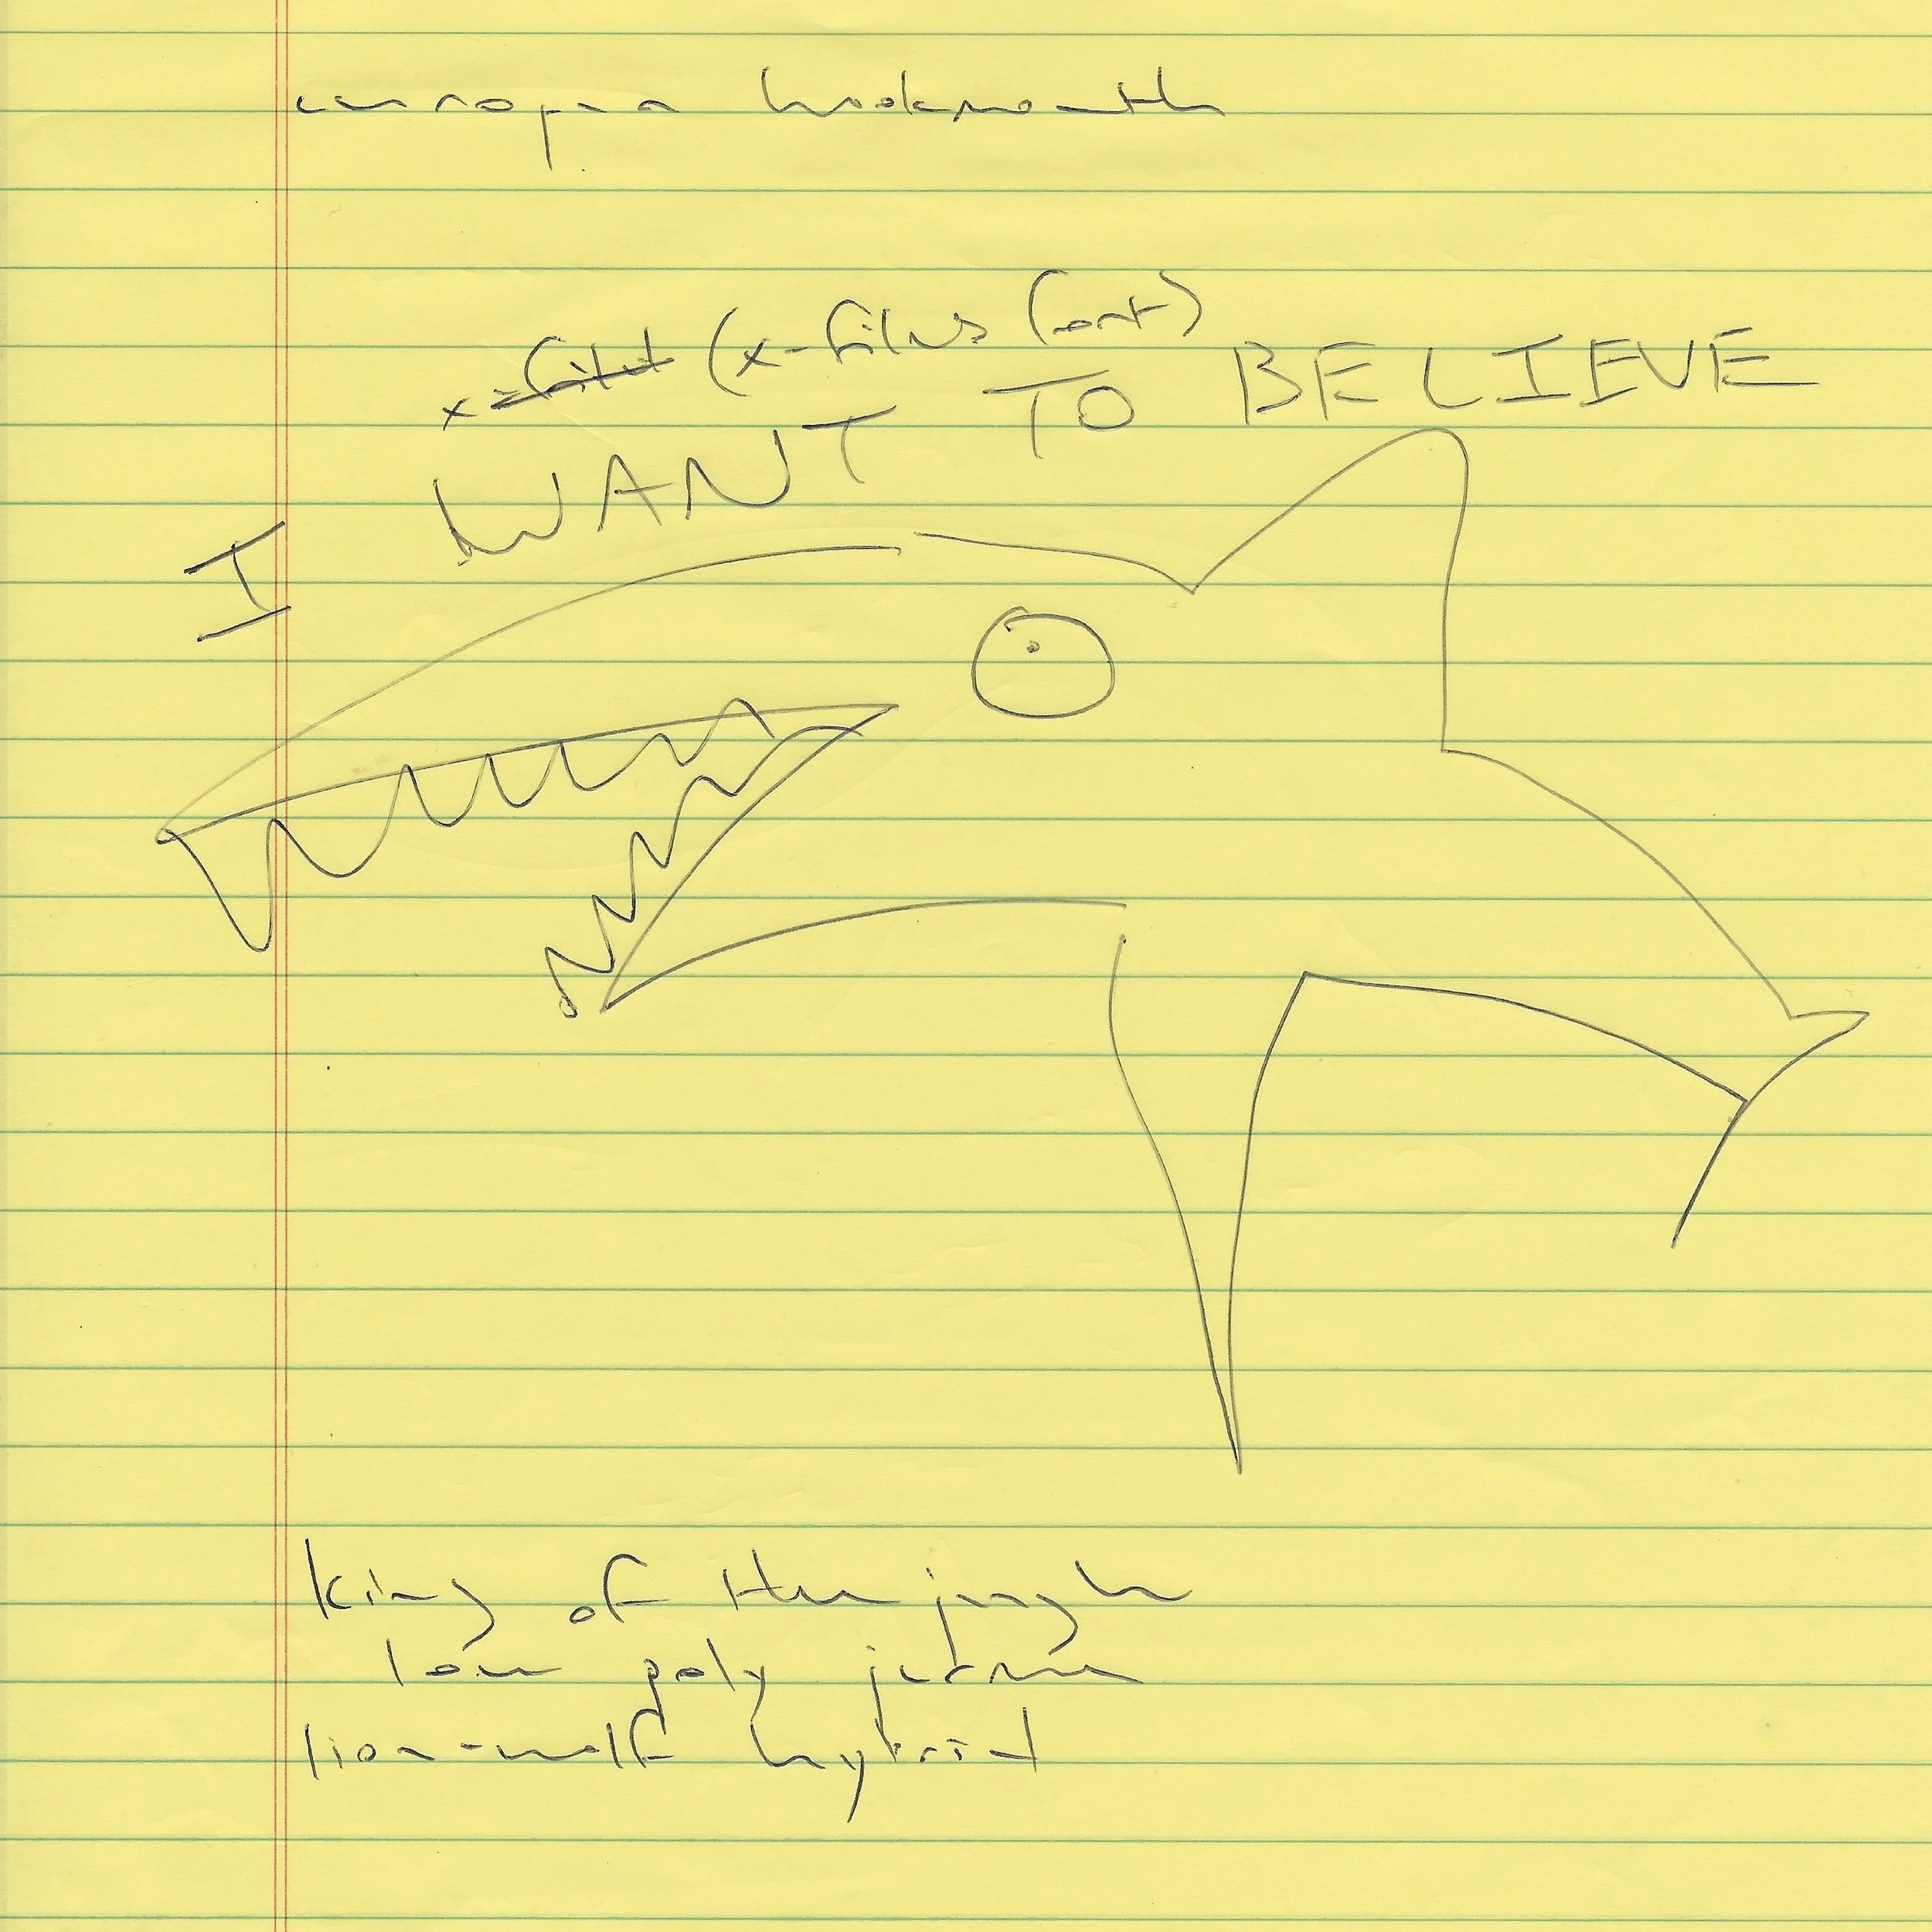 europa hookmouth
x-filed (x-files font)
I WANT TO BELIEVE
king of the jungle
low poly jerma
lion-wolf hybrid